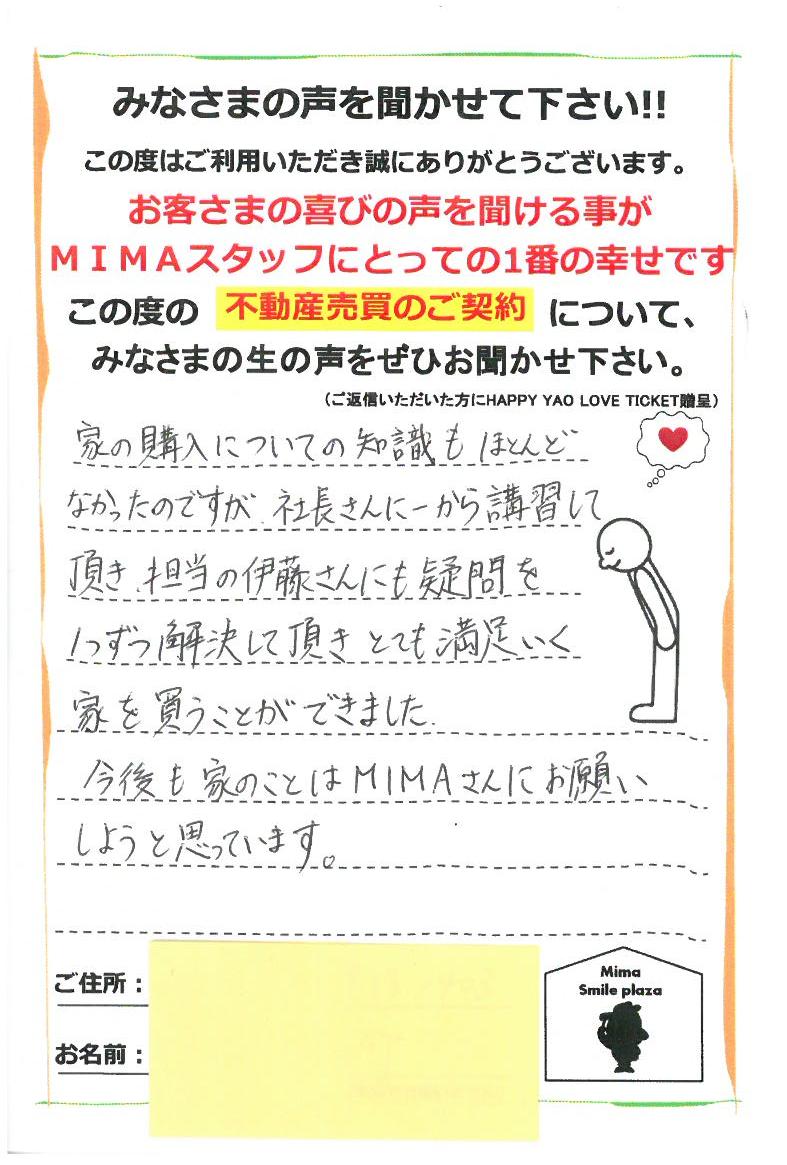 みなさまの声を聞かせて下さい!!
この度はご利用いただき誠にありがとうございます。
お客さまの喜びの声を聞ける事が
ＭＩＭＡスタッフにとっての1番の幸せです
この度の 不動産売買のご契約 について、
みなさまの生の声をぜひお聞かせ下さい。
（ご返信いただいた方にHAPPY YAO LOVE TICKET贈呈）
家の購入についての知識もほとんど
なかったのですが、社長さんに一から講習して
頂き、担当の伊藤さんにも疑問を
1つずつ解決して頂きとても満足いく
家を買うことができました.
今後も家のことはMIMAさんにお願い
しようと思っています。
ご住所：
お名前：
Mima
Smile plaza